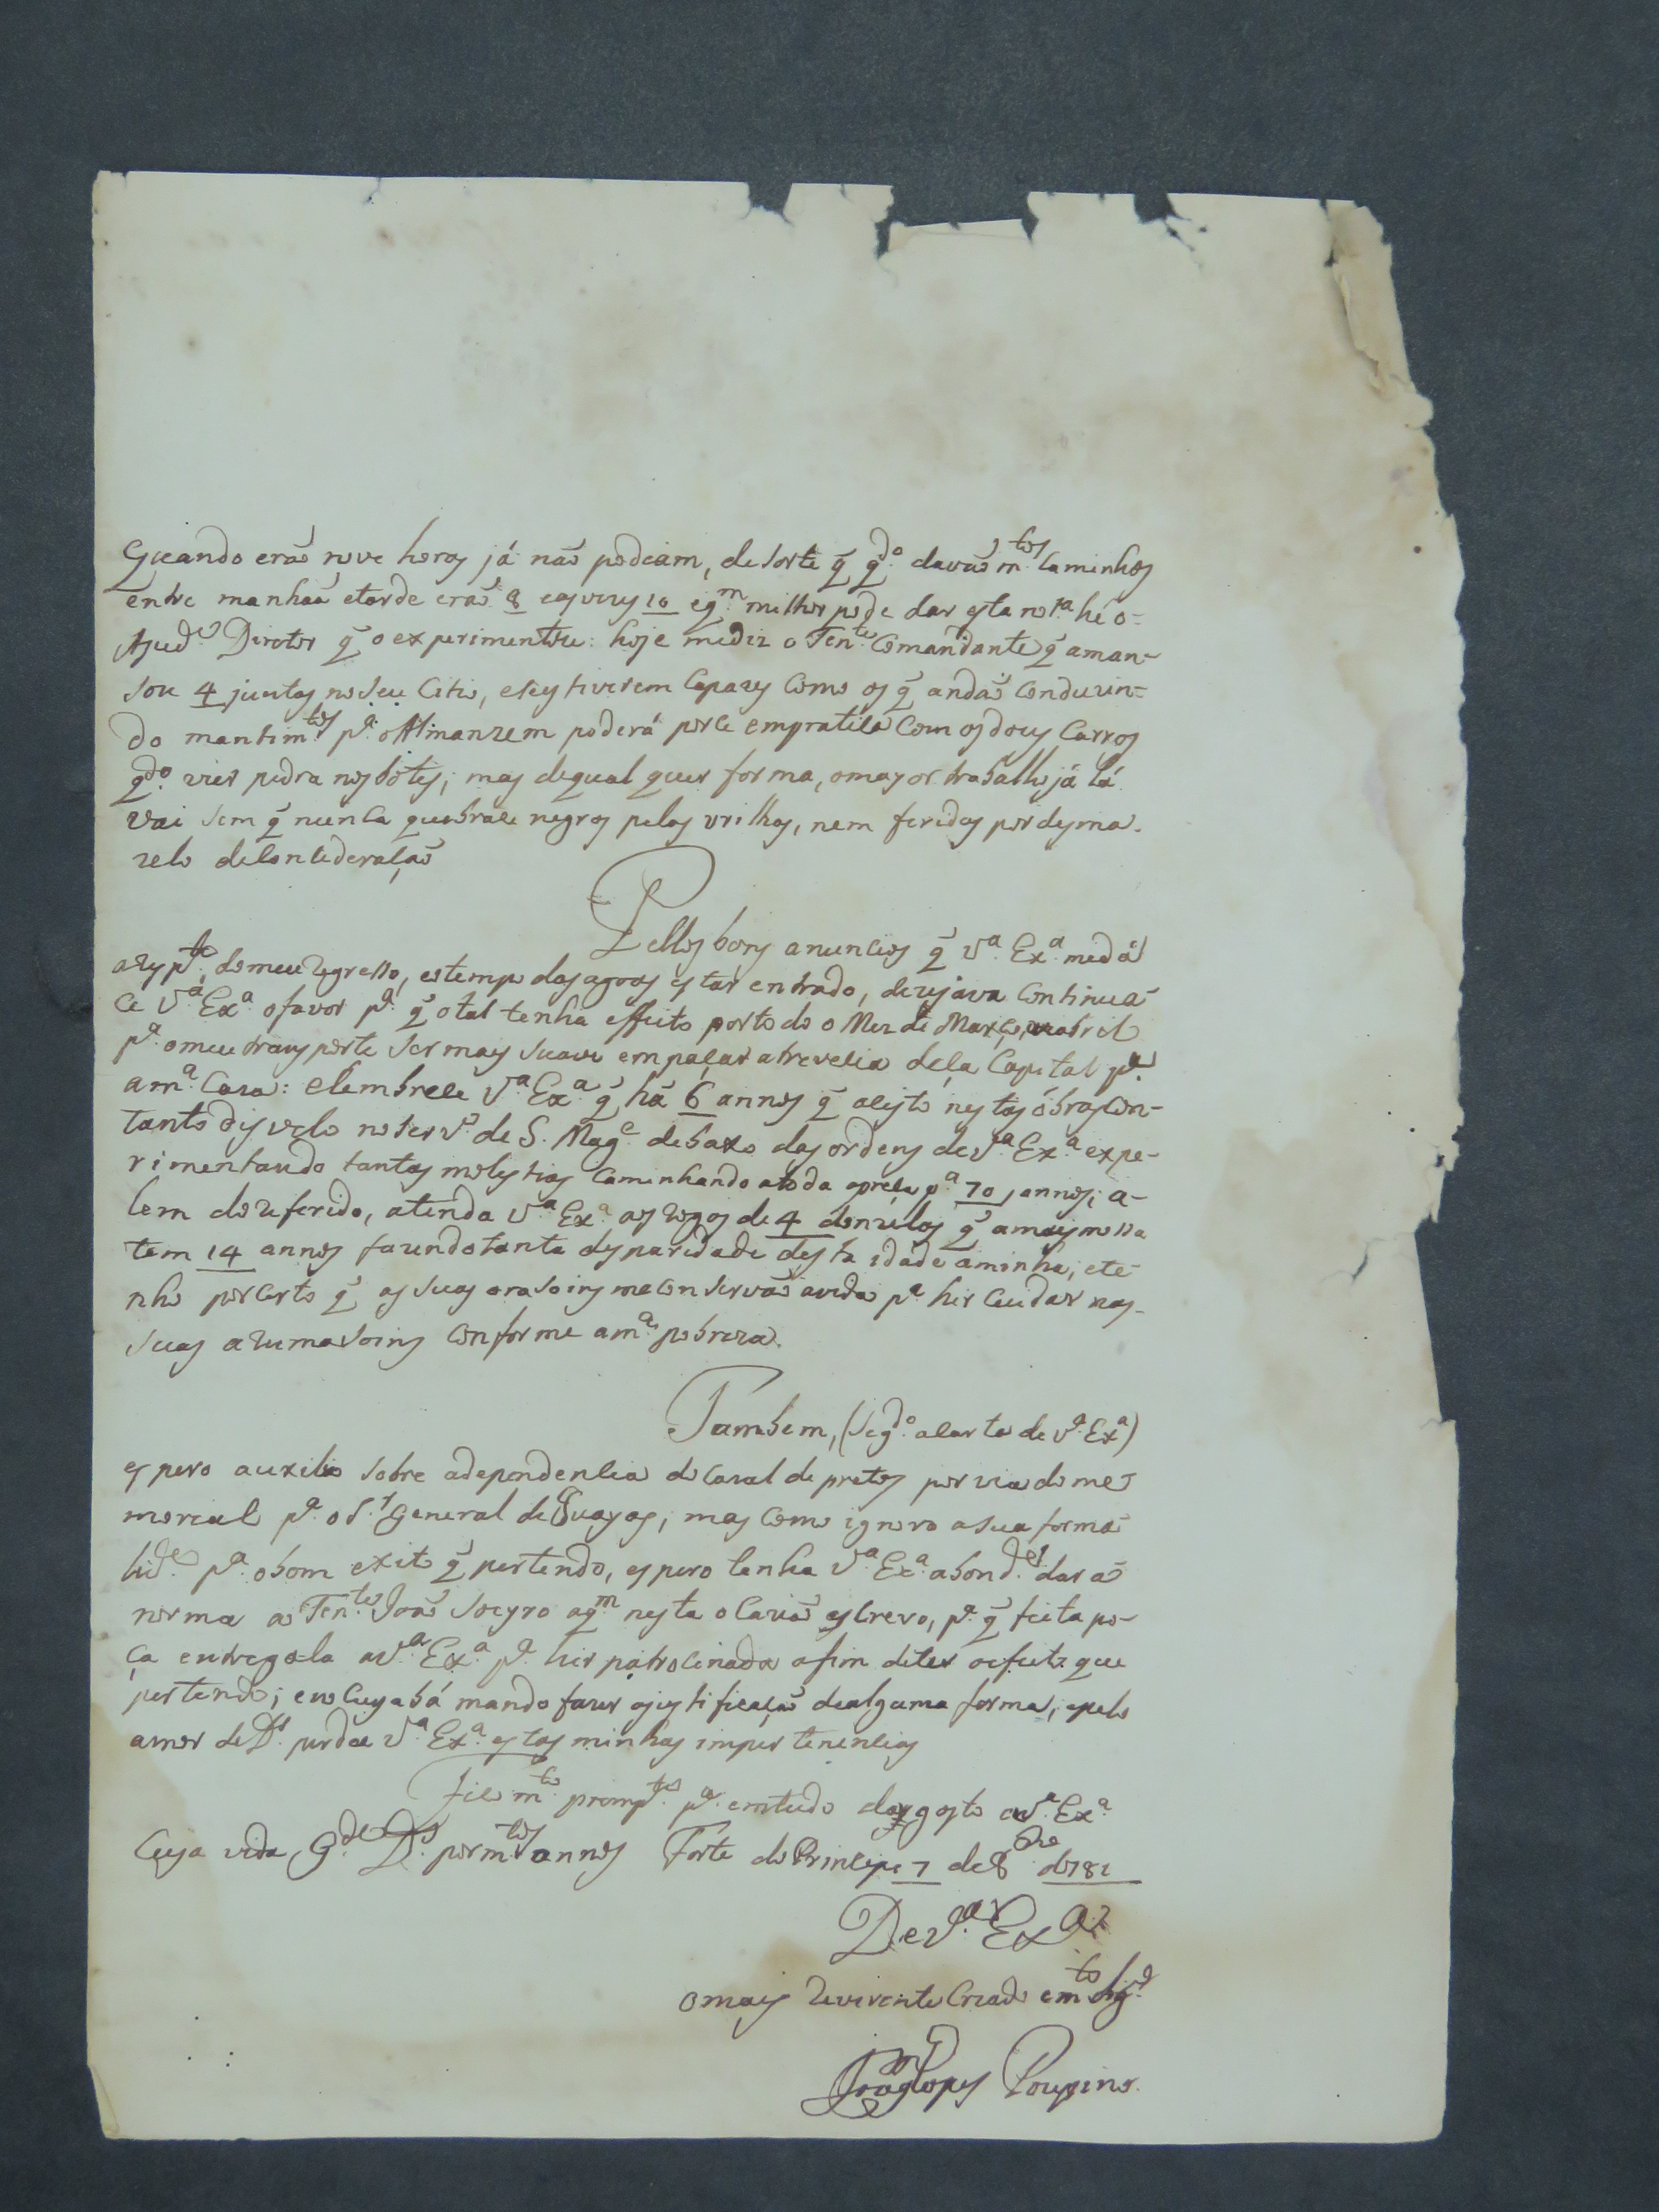 Quando erão nove horas já não podeam, de sorte q̃ qdo. davão mtos. Caminhos
entre manhaã etarde erão 8 eas vezes 10 eqm. milhor pode dar esta nota. hé o-
Ajude. Diretor q̃ o experimentou: hoje mediz o Tente. Comandante q̃ aman-
sou 4 juntas no seu Citio, eseys tiverem Capazes Como os q̃ andão Conduzin-
do mantimtos. pa. o Almanzem poderá porce empratica Com os dous Carros
qdo. vier pedra nos bótes; mas dequal quer forma, omayor trabalho já lá
vai sem q̃ nunca quebrace negros pelas vrilhas, nem feridos por desma-
zelo deConcideração
Pellos bons anuncios q̃ Va. Exa. medá
do meu regresso, eotempo das agoas estar entrado, dezejava Continua-
ce Va. Exa. o favor pa. q̃ otal tenha effeito portodo o Mez de Março,
pa. omeu transporte ser mays suave empaçar deça Capital pa.
ama. Caza: elembrece Va. Exa. q̃ há 6 annos q̃ acisto nestas óbras Con-
tanto disvelo no servo. de S. Mage. debaxo das ordens deVa. Exa. expe-
rimentando tantas molestias Caminhando atoda apreça pa. 70 annos; a-
lem do referido, atenda Va. Exa. aos rogos de 4 donzelas q̃ amays mossa
tem 14 annos fazendo tanta desparidade desta idade aminha, ete-
nho porCerto q̃ as suas orasoins meConservão avida pa. hir Cuidar nas-
suas arumasoins Conforme ama. pobreza.
Tambem, (segdo. aCarta de Va. Exa.)
espero auxilio sobre adependencia do Cazal de pretos por via do me-
morial pa. o Sr. General de Guayas; mas Como ignoro asua forma-
lide. pa. obom exito q̃ pertendo, espero tenha Va. Exa. abonde. dar a
norma ao Tente. João aqm. nesta oCazião escrevo, pa. q̃ feita po-
ça entregala aVa. Exa. pa. hir patrocinada afim deter oefeito que
pertendo; eno Cuyabá mando fazer ajustificação dealguma forma; epelo
amor deDs. perdoe Va. Exa. estas minhas impertenencias
Fico mto. prompto. pa. emtudo dar gosto aVa. Exa.
Cuja vida gde. Ds. por mtos. annos Forte do Principe 7 de 8bro de 781
DeVa. Exa.
omays Reverente Criado emto. obgo.
João Lopes Poupino.